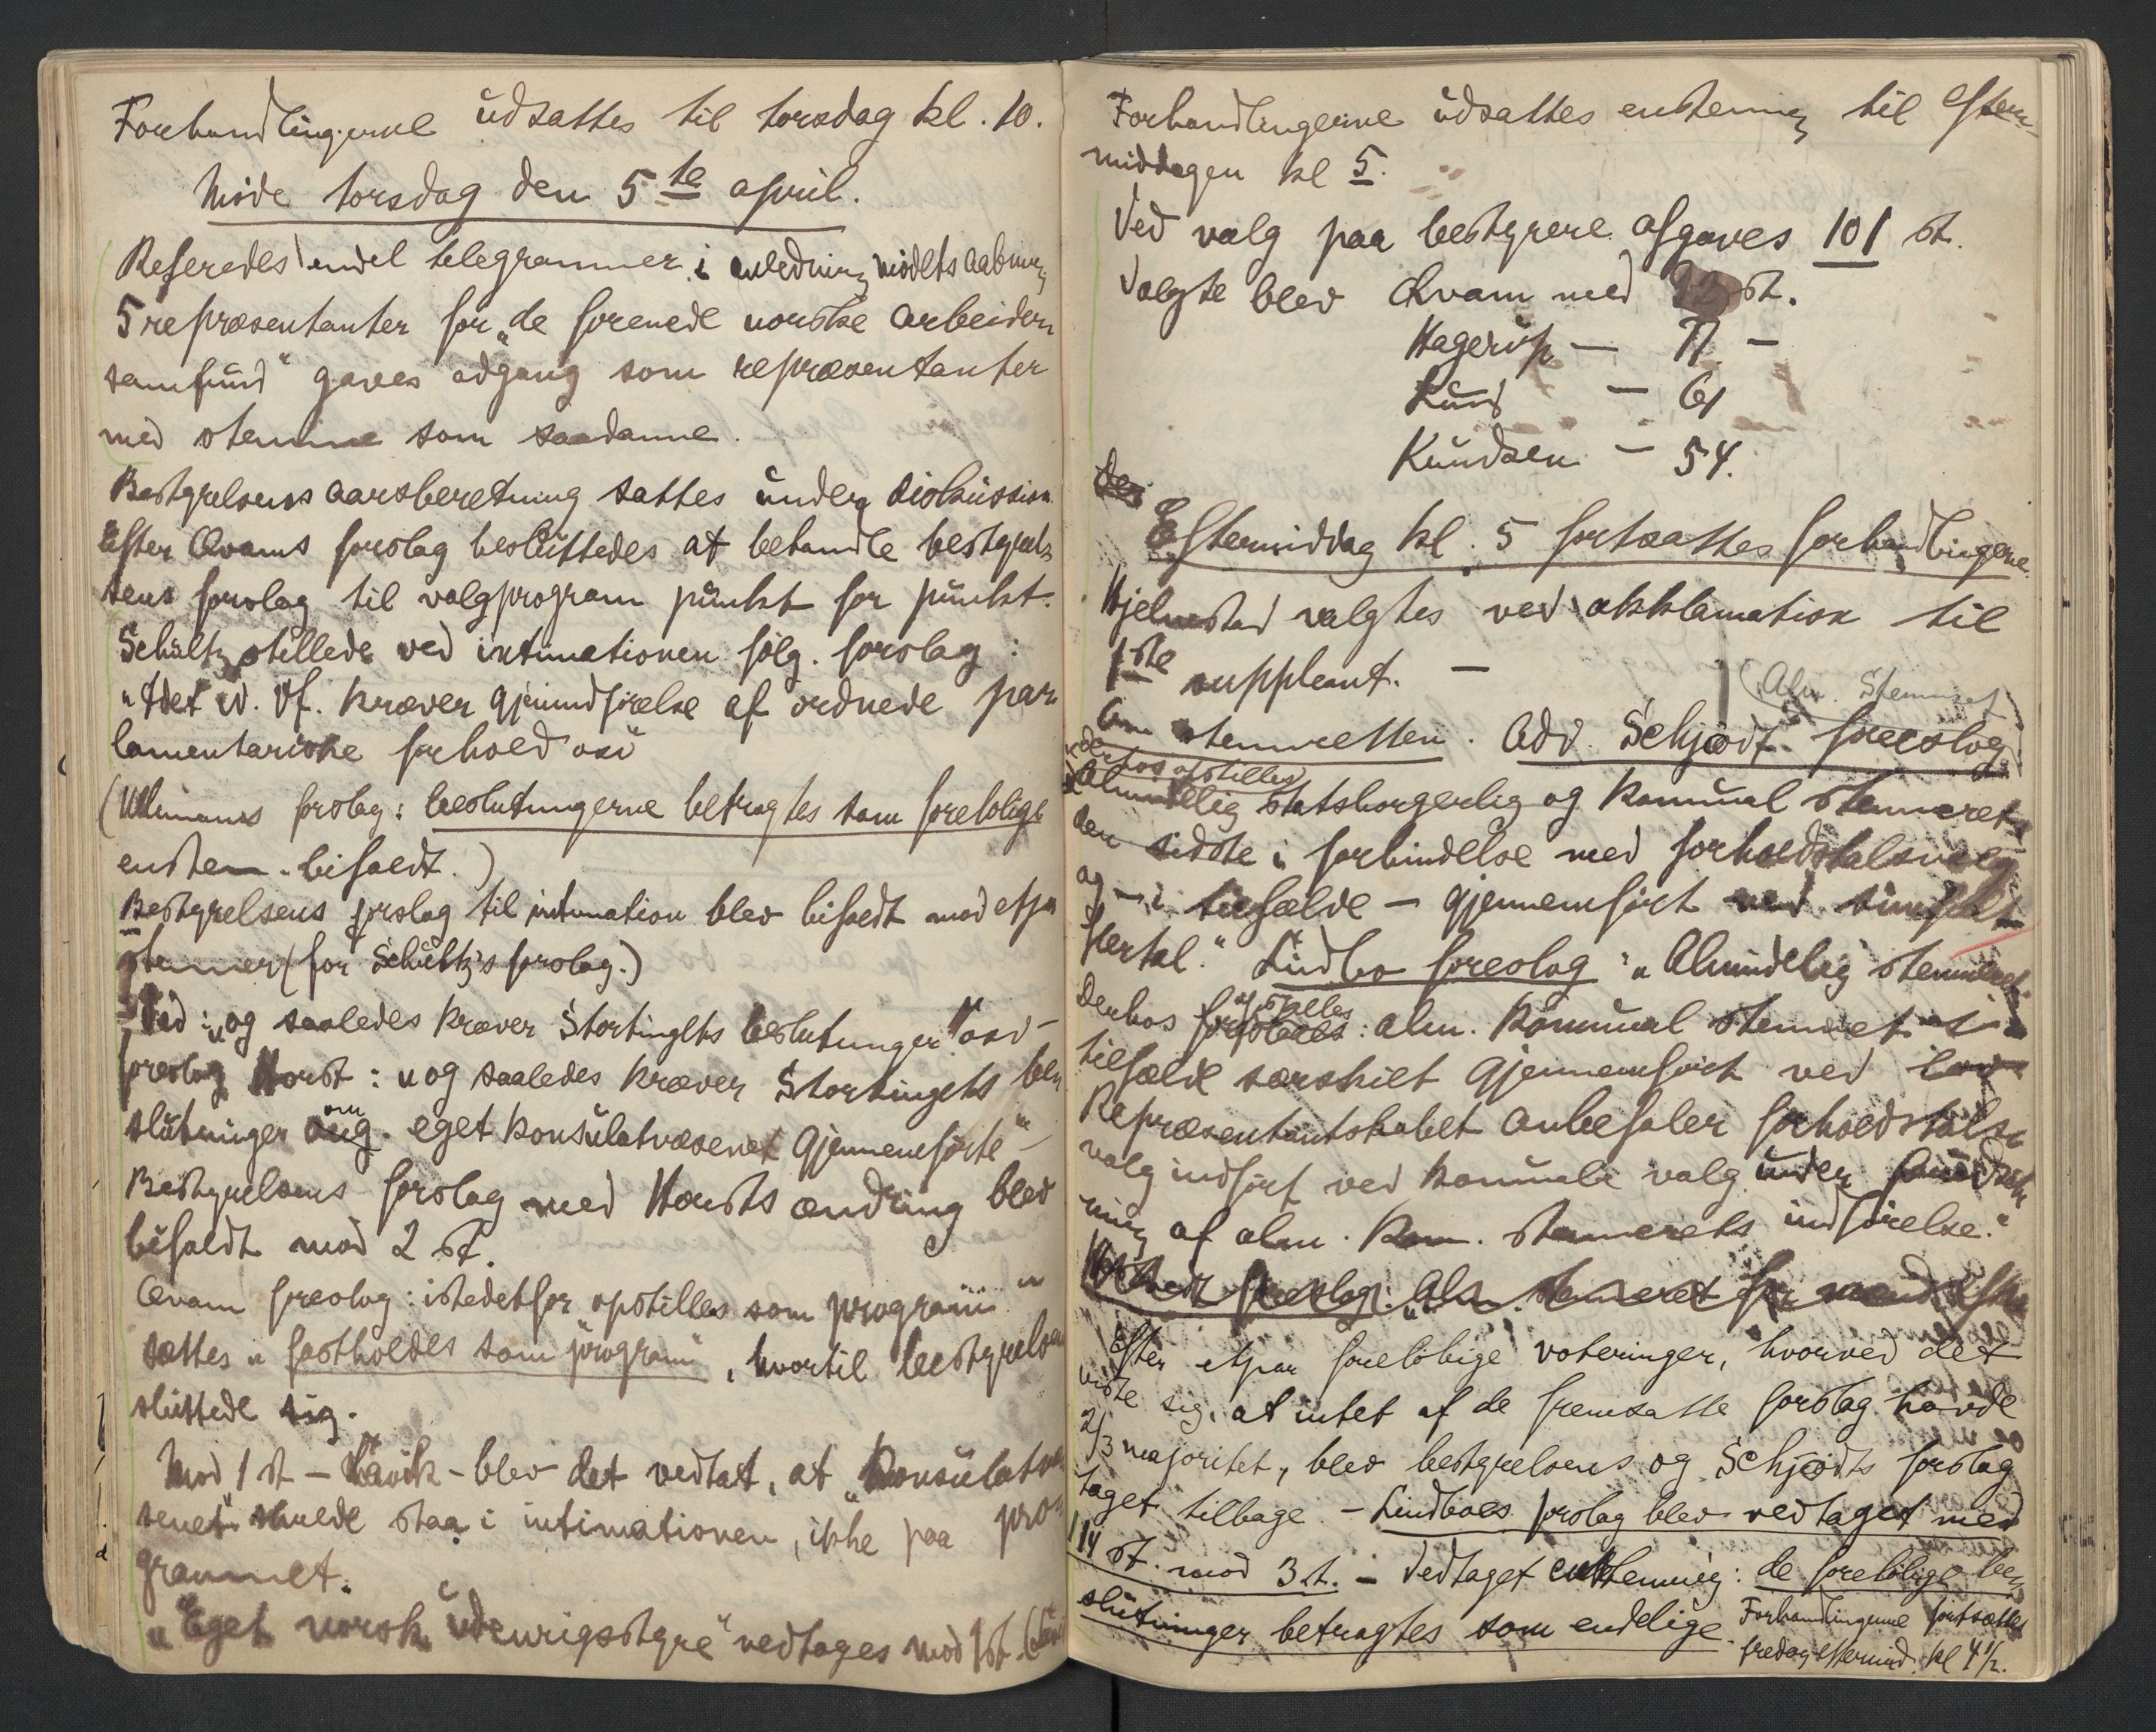 Forhandlingerne udsattes til torsdag kl. 10.
Möde torsdag den 5te april.
Referedes endel telegrammer i anledning mödets aabning
5 repræsentanter for „de forenede norske arbeider
samfund" gaves adgang som repræsentanter
med stemme som saadanne.
Bestyrelsens aarsberetning sattes under diskussion.
Efter Qvams forslag besluttedes at behandle bestyrel
sens forslag til valgprogram punkt for punkt.
Schultz stillede ved intimationen fölg. forslag:
„Idet d. Vf. kræver gjenindförelse af ordnede par
lamentariske forhold osv
(Ullmanns forslag: beslutningerne betragtes som forelöbige
enstem. bifaldt.)
Bestyrelsens forslag til intimation blev bifaldt mod etpar
stemmer (for Schultz's forslag.)
Ved: „og saaledes kræver Stortingets beslutninger" osv –
foreslog Horst: „og saaledes kræver Stortingets be
slutninger om eget konsulatvæsenet gjennemförte"
Bestyrelsens forslag med Horsts ændring blev
bifaldt mod 2 st.
Qvam foreslog: istedetfor opstilles som program"
sættes „fastholdes som program", hvortil bestyrelsen
sluttede sig.
Mod 1 st – Lövik – blev det vedtat, at „Konsulatvæ
senet" skulde staa i intimationen, ikke paa pro
grammet.
„Eget norsk udenrigsstyre" vedtages mod 1 st.
Forhandlingerne udsattes enstemig til efter
middagen kl 5.
Ved valg paa bestyrere afgaves 101 st.
Valgte blev Qvam med 92 st.
Hagerup – 77 –
Lund – 61
Knudsen – 54.
Eftermiddag kl. 5 fortsattes forhandlingene.
Hjelmstad valgtes ved akklamation til
1ste suppleant. –
(Alm. Stemmeret
Om stemmeretten. Adv. Schjödt foreslog
derhos opstilles
Almindelig statsborgerlig og kommunal stemmeret,
den sidste i forbindelse med forholdstalsvalg
og – i tilfælde – gjennemfört ved simpelt
flertal." Lindbo foreslog: „Almindelig stemmeret.
Derhos opstilles: alm. kommunal stemmeret i
tilfælde særskilt gjennemfört ved lov
Repræsentantskabet anbefaler forholdstals
valg indfört ved kommunale valg under forudsæt
ning af alm. kom. stemmerets indförelse."
Efter etpar forelöbige voteringer, hvorved det
viste sig, at intet af de fremsatte forslag havde
2/3 majoritet, blev bestyrelsens og Schjödts forslag
taget tilbage. – Lindboes forslag blev vedtaget med
114 st. mod 3 st. – Vedtaget enstemmig: de forelöbige be
slutninger betragtes som endelige. Forhandlingerne fortsættes
fredag eftermid. kl 4 1/2.